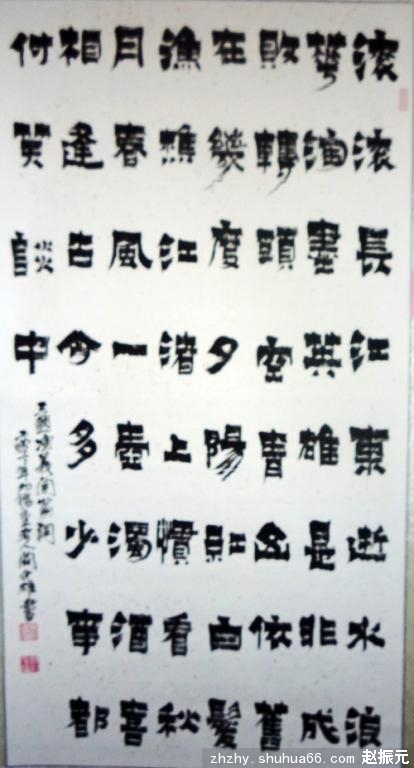 滚滚長江東逝水浪
花淘盡英雄是非成
敗轉頭空青山依舊
在幾度夕陽紅白髮
漁樵江渚上慣看秋
月春風一壺濁酒喜
相逢古今多少事都
付笑談中
三國演義開篇詞
zhzhy.shuhua66.com 赵振元